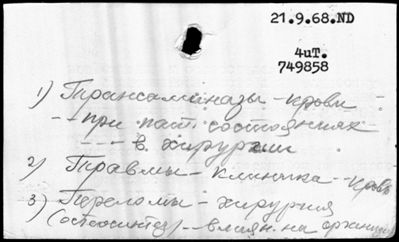 21.9.68.ND
4uT.
749858
1) Трансаминазы - крови
-- при пат. состояниях
--- в хирургии
2) Травмы - клиника - кровь
3) Переломы - хирургия
(остеосинтез) - влиян. на организм